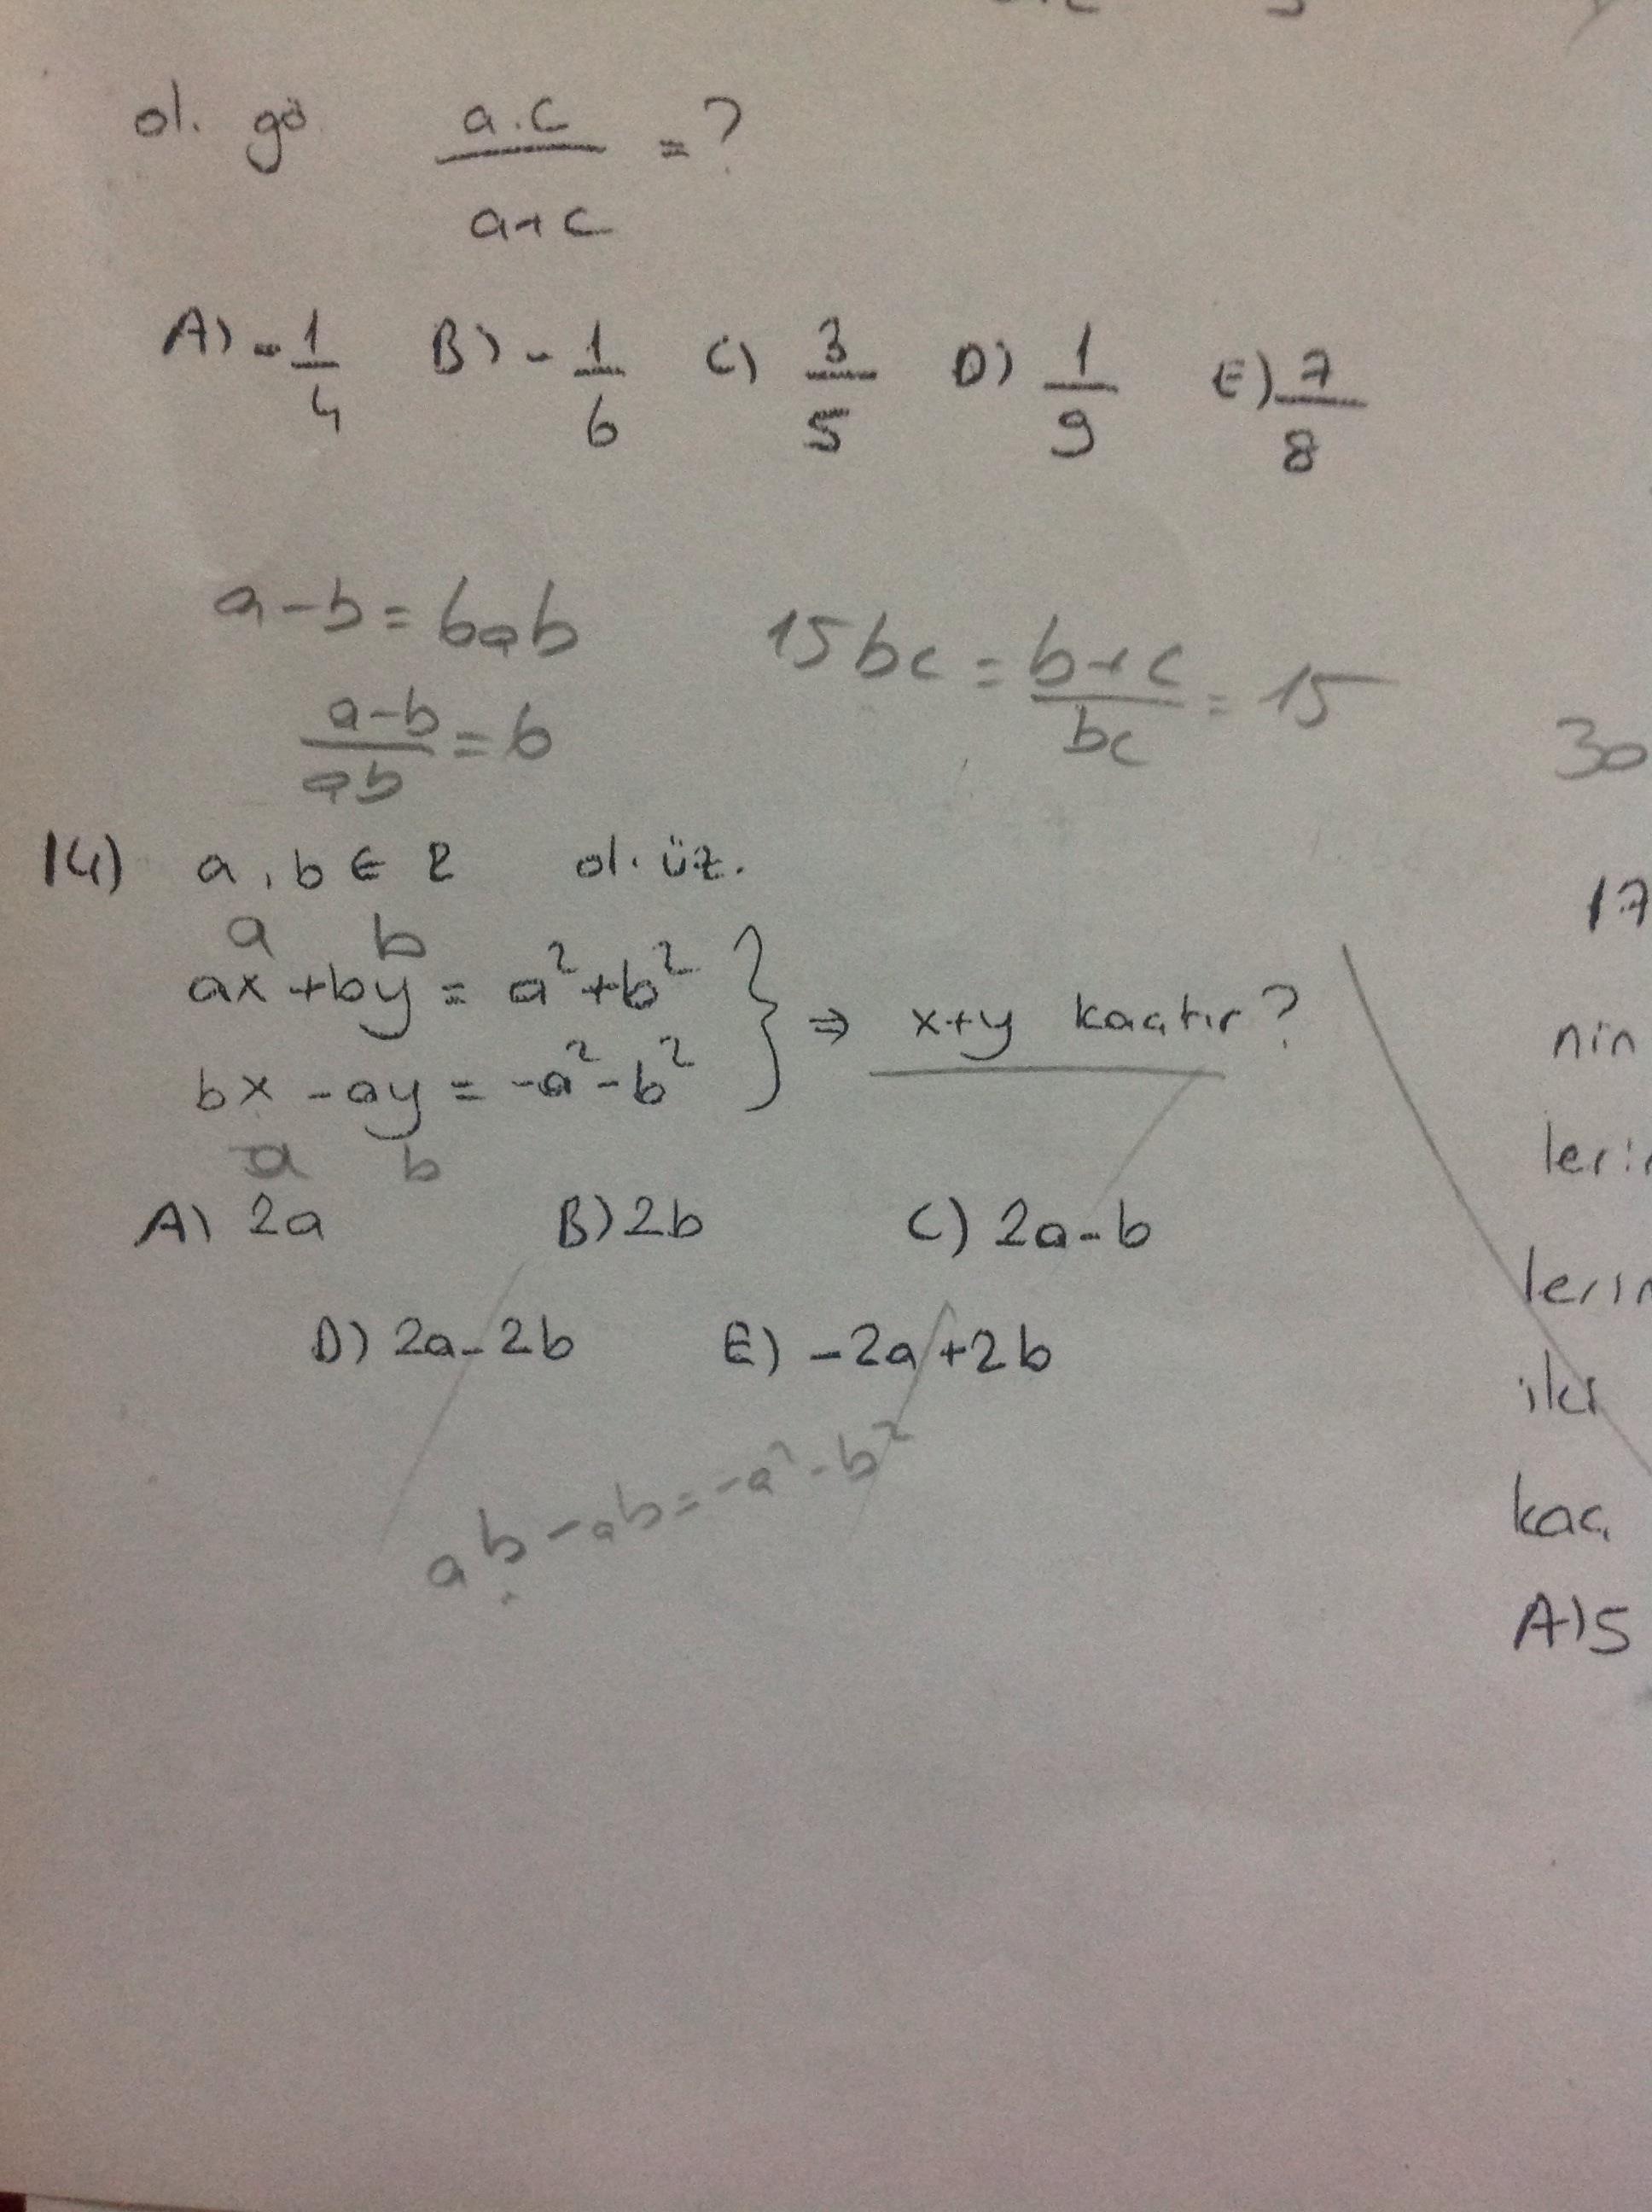 ol. gö a.c / a+c = ?
A) -1/4 B) -1/6 C) 3/5 D) 1/9 E) 7/8
a-b = 6ab
a-b / ab = 6
15bc = b+c / bc = 15
30
14) a, b ∈ Z ol. üz.
a b
ax + by = a² + b²
bx - ay = -a² - b²
} ⇒ x+y kaçtır?
a b
A) 2a B) 2b C) 2a-b
D) 2a-2b E) -2a+2b
ab - ab = -a² - b²
17
nin
iki
kaç
A) 5